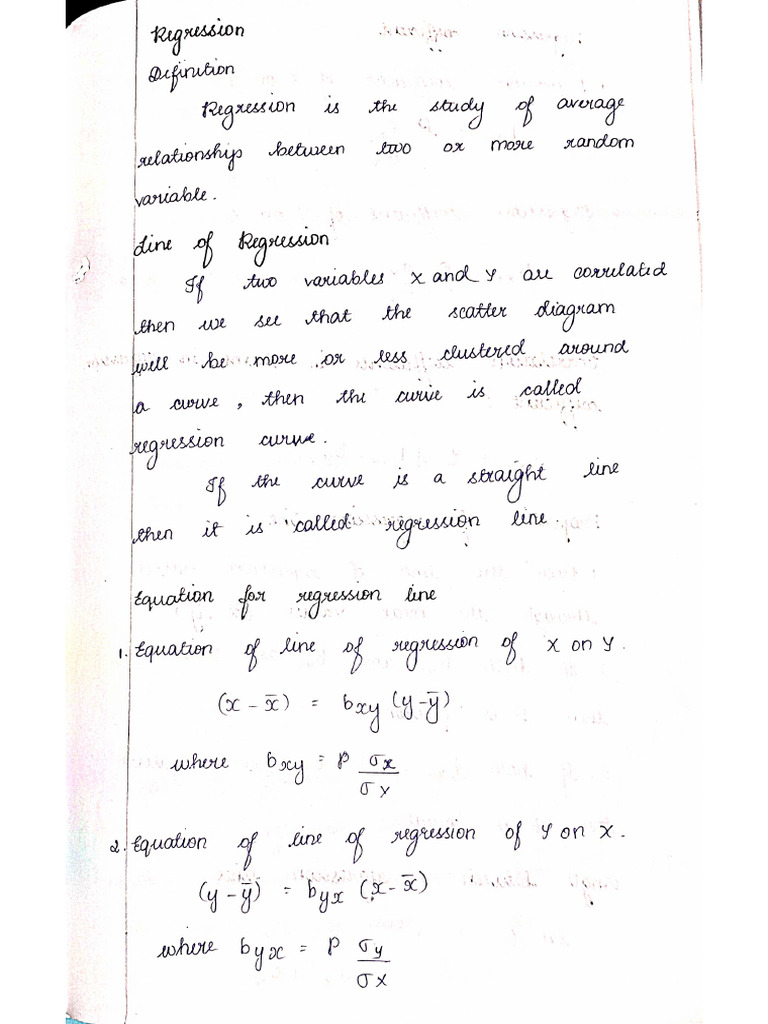 Regression
Definition
Regression is the study of average
relationship between two or more random
variable.
Line of Regression
If two variables X and Y are correlated
then we see that the scatter diagram
will be more or less clustered around
a curve, then the curve is called
regression curve.
If the curve is a straight line
then it is called regression line.
Equation for regression line
1. Equation of line of regression of X on Y.
(x - x̄) = bxy (y - ȳ)
where bxy = ρ σx / σy
2. Equation of line of regression of Y on X.
(y - ȳ) = byx (x - x̄)
where byx = ρ σy / σx